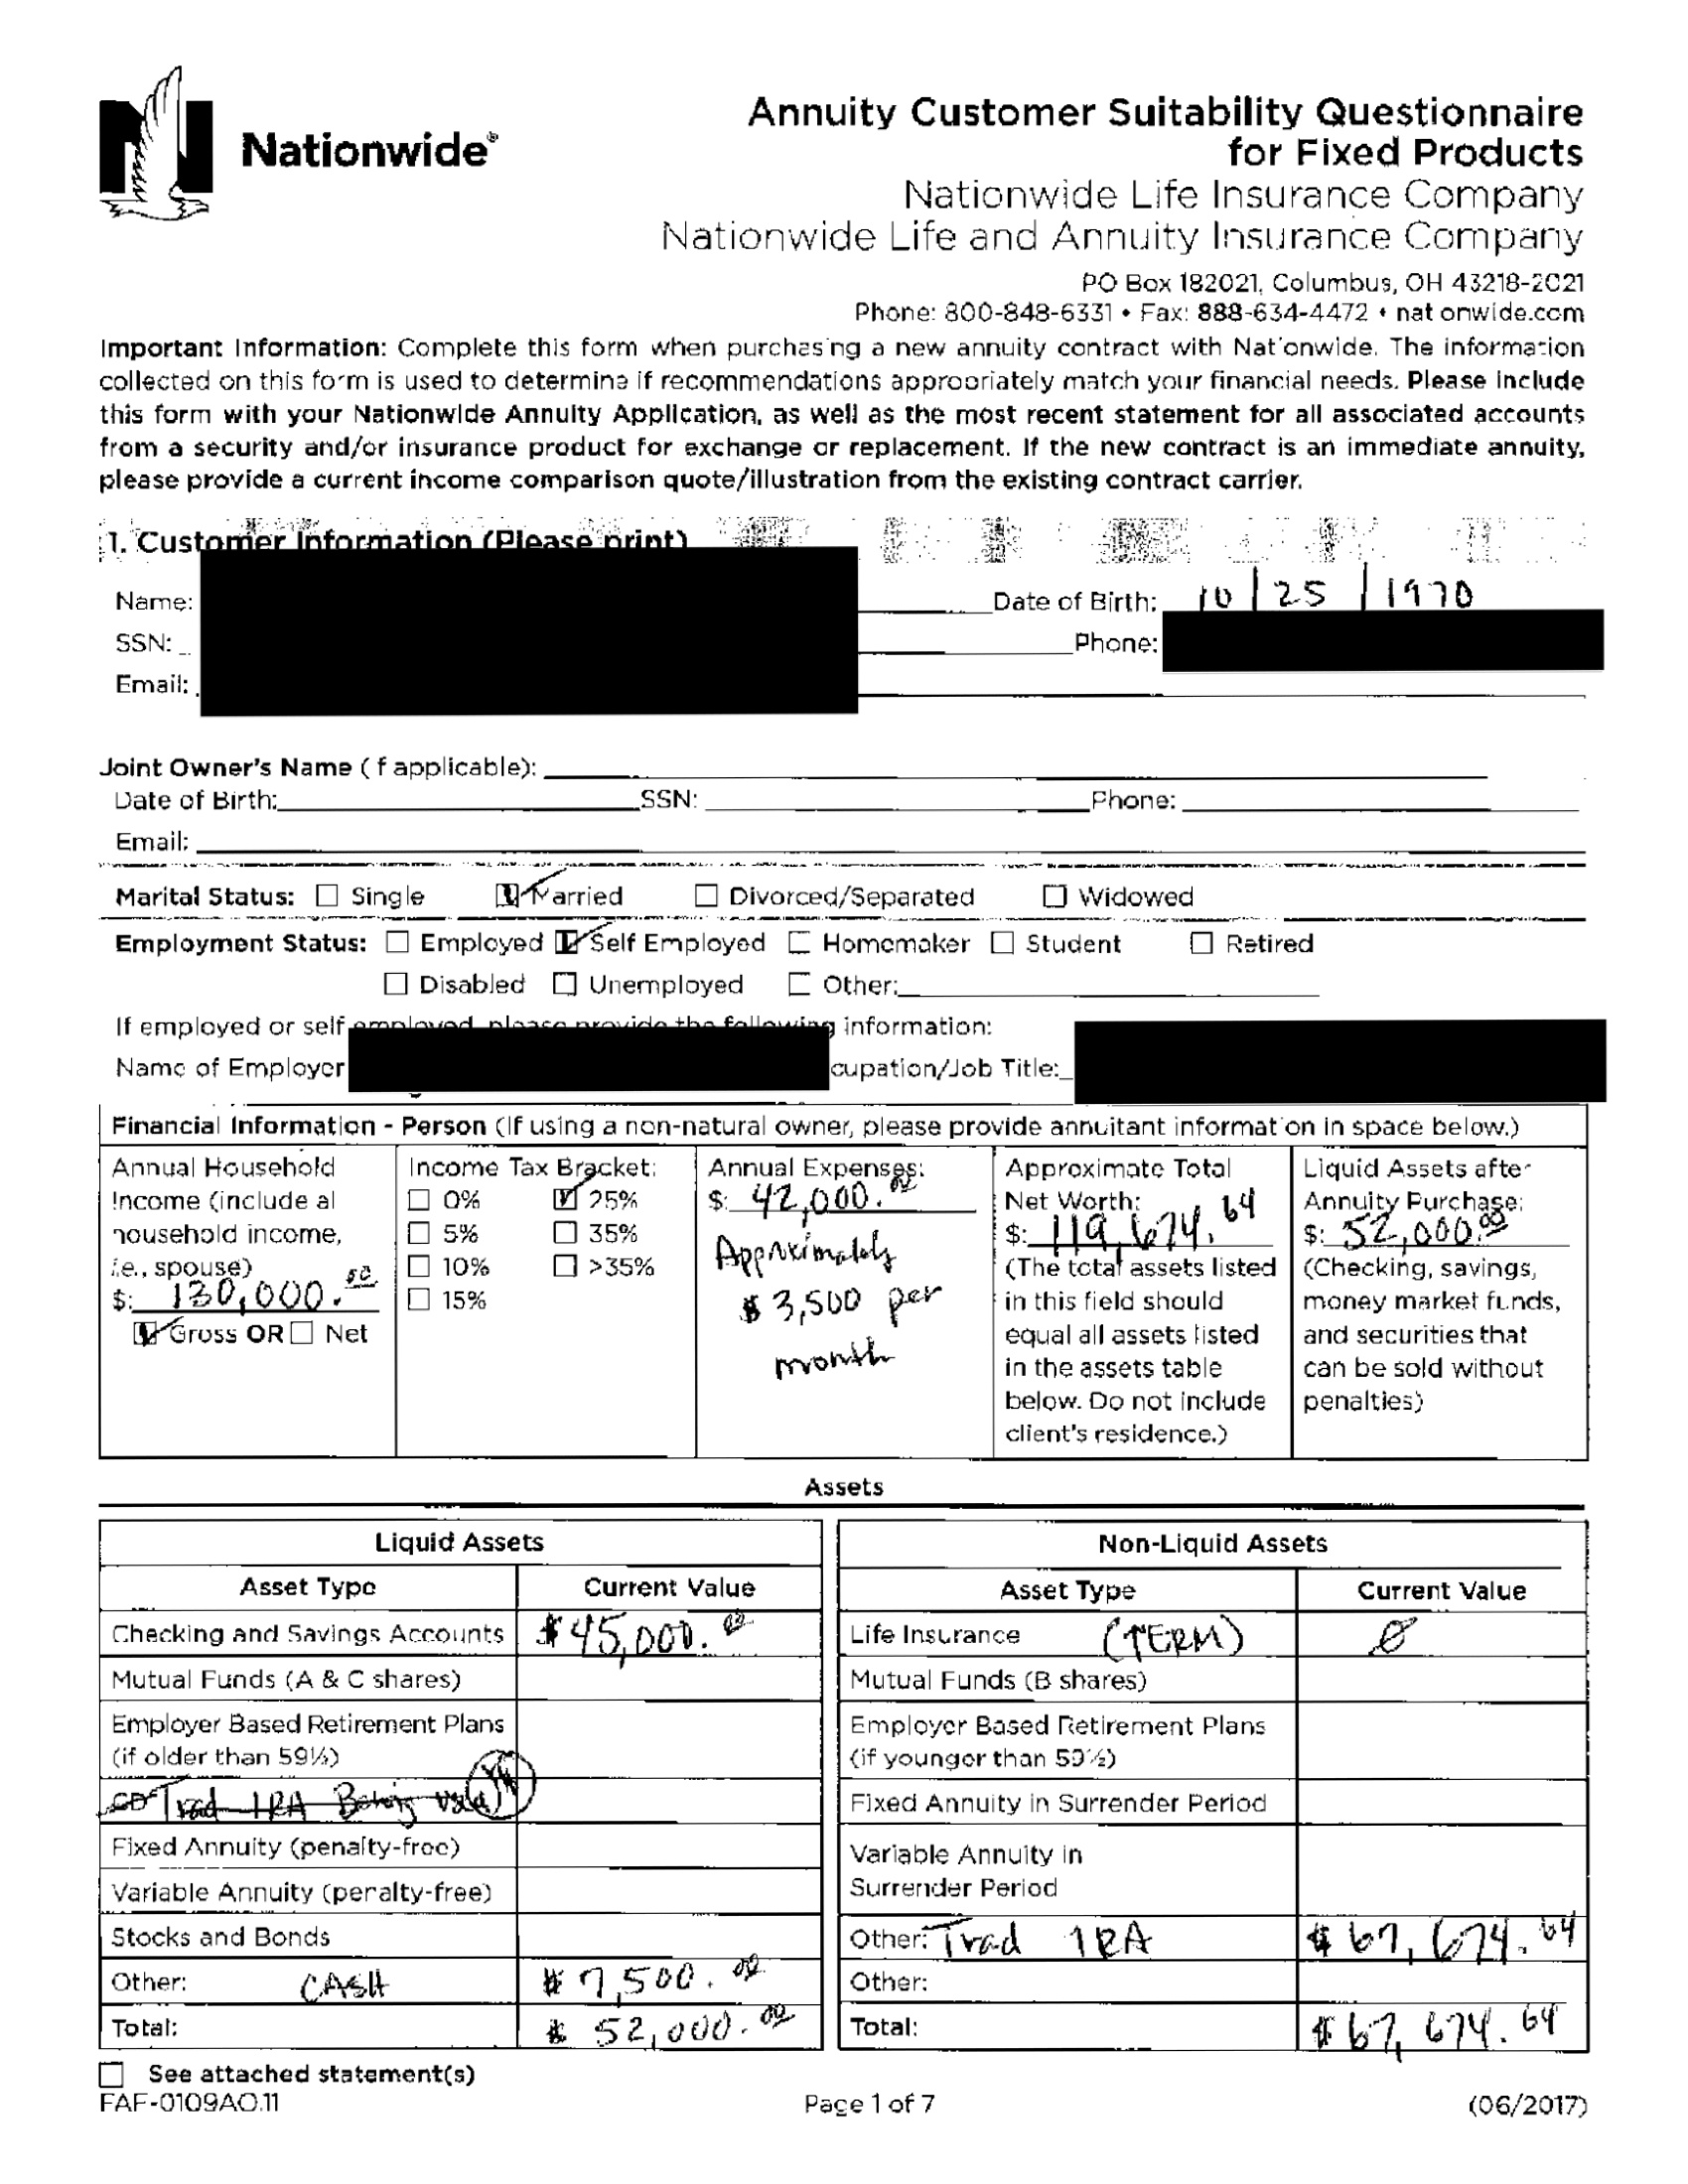 Nationwide®
Annuity Customer Suitability Questionnaire
for Fixed Products
Nationwide Life Insurance Company
Nationwide Life and Annuity Insurance Company
PO Box 182021, Columbus, OH 43218-2021
Phone: 800-848-6331 • Fax: 888-634-4472 • nat onwide.com
Important Information: Complete this form when purchasing a new annuity contract with Nationwide. The information
collected on this form is used to determine if recommendations appropriately match your financial needs. Please include
this form with your Nationwide Annuity Application, as well as the most recent statement for all associated accounts
from a security and/or insurance product for exchange or replacement. If the new contract is an immediate annuity,
please provide a current income comparison quote/illustration from the existing contract carrier.
1. Customer Information (Please print)
Name: Date of Birth: 10/25/1970
SSN: Phone:
Email:
Joint Owner's Name ( f applicable):
Date of Birth: SSN: Phone:
Email:
Marital Status: ☐ Single ☑ Married ☐ Divorced/Separated ☐ Widowed
Employment Status: ☐ Employed ☑ Self Employed ☐ Homemaker ☐ Student ☐ Retired
☐ Disabled ☐ Unemployed ☐ Other:
If employed or self employed, please provide the following information:
Name of Employer cupation/Job Title:
Financial Information - Person (If using a non-natural owner, please provide annuitant information in space below.)
Annual Household
Income (include al
household income,
i.e., spouse)
$: 130,000.
☑ Gross OR ☐ Net
Income Tax Bracket:
☐ 0% ☑ 25%
☐ 5% ☐ 35%
☐ 10% ☐ >35%
☐ 15%
Annual Expenses:
$: 42,000.00
Approximately
$ 3,500 per
month
Approximate Total
Net Worth:
$: 119,674.64
(The total assets listed
in this field should
equal all assets listed
in the assets table
below. Do not include
client's residence.)
Liquid Assets after
Annuity Purchase:
$: 52,000.00
(Checking, savings,
money market funds,
and securities that
can be sold without
penalties)
Assets
Liquid Assets
Asset Type Current Value
Checking and Savings Accounts $45,000.00
Mutual Funds (A & C shares)
Employer Based Retirement Plans
(if older than 59½)
CD Trad IRA Being
Fixed Annuity (penalty-free)
Variable Annuity (penalty-free)
Stocks and Bonds
Other: CASH $7,500.00
Total: $52,000.00
Non-Liquid Assets
Asset Type Current Value
Life Insurance (TERM) Ø
Mutual Funds (B shares)
Employer Based Retirement Plans
(if younger than 59½)
Fixed Annuity in Surrender Period
Variable Annuity in
Surrender Period
Other: Trad IRA $67,674.64
Other:
Total: $67,674.64
☐ See attached statement(s)
FAF-0109AO.11 Page 1 of 7 (06/2017)